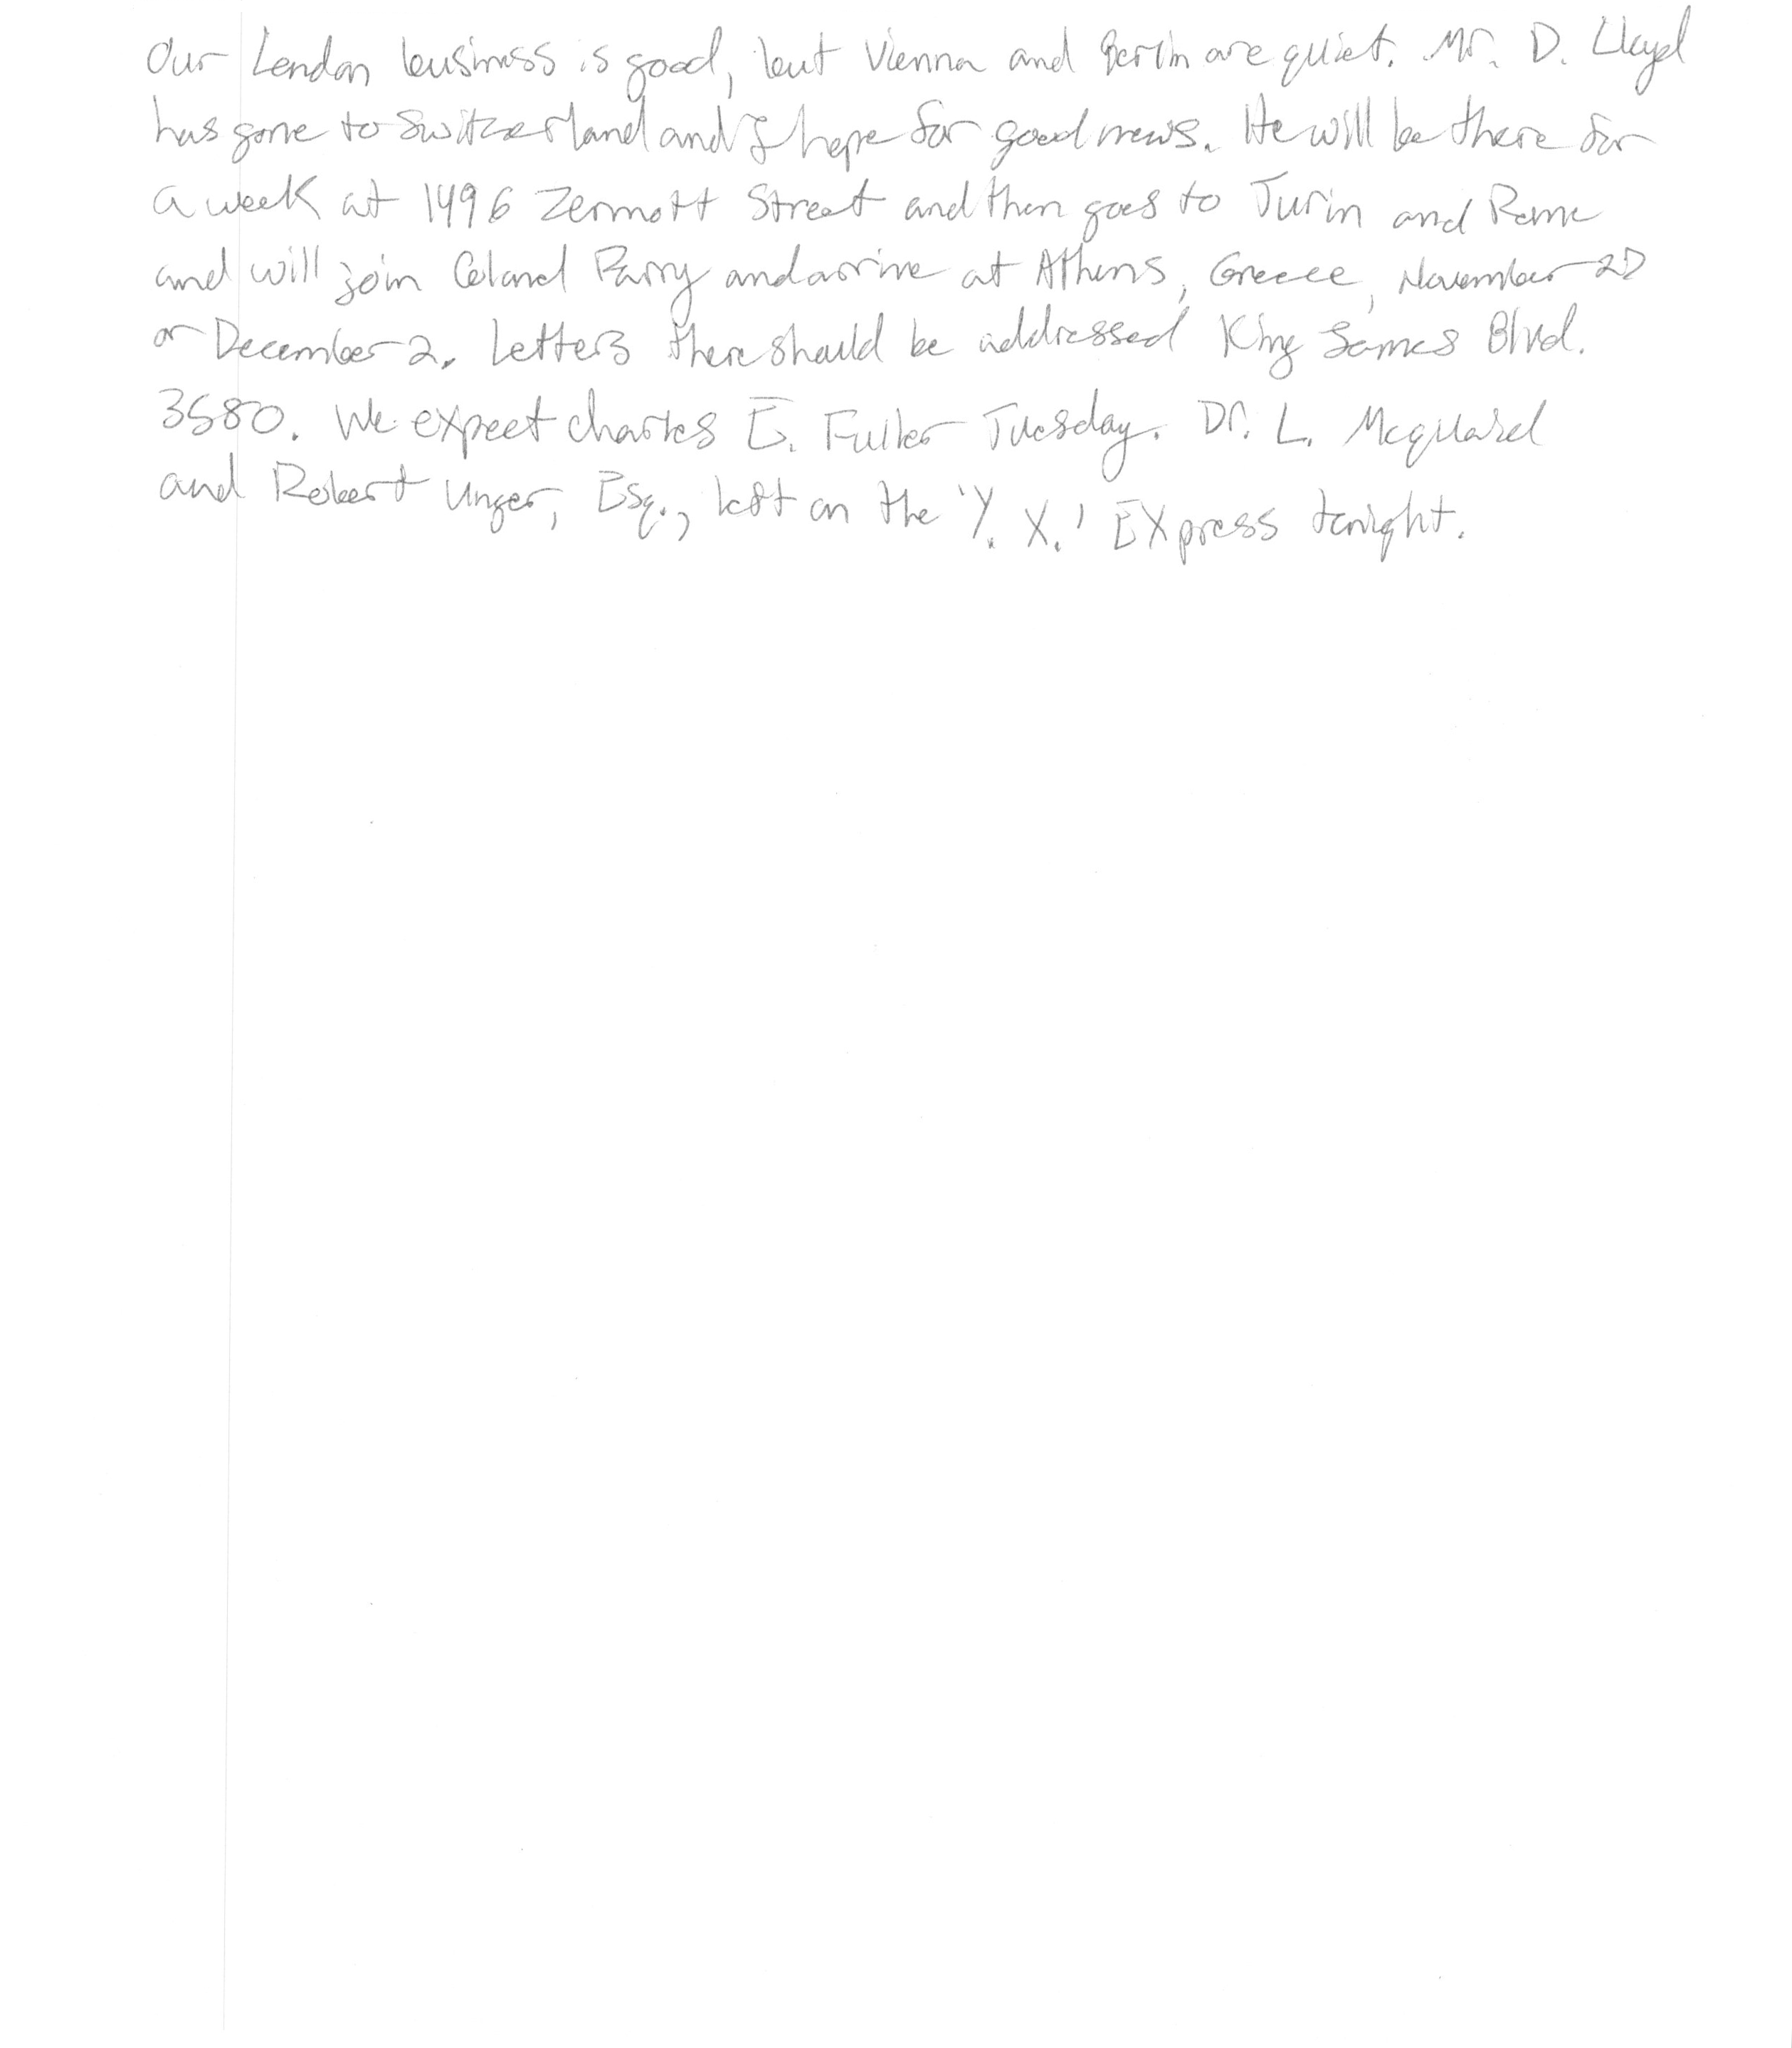 Our London business is good, but Vienna and Berlin are quiet. Mr. D. Lloyd
has gone to Switzerland and I hope for good news. He will be there for
a week at 1496 Zermott Street and then goes to Turin and Rome
and will join Colonel Parry and arrive at Athens, Greece, November 27
or December 2. Letters there should be addressed King James Blvd.
3580. We expect Charles E. Fuller Tuesday. Dr. L. McQuaid
and Robert Unger, Esq., left on the 'Y. X.' Express tonight.